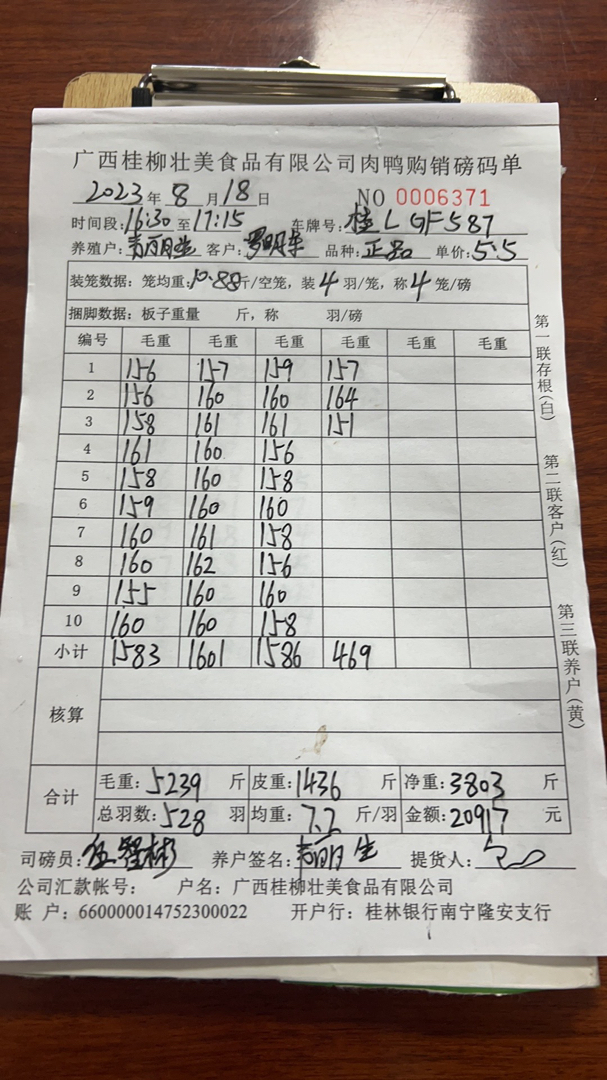 广西桂柳壮美食品有限公司肉鸭购销磅码单
2023年8月18日 NO 0006371
时间段:16:30至17:15 车牌号:桂L GF587
养殖户: 客户: 品种:正品 单价:5.5
装笼数据: 笼均重:10.88斤/空笼，装4羽/笼，称4笼/磅
捆脚数据: 板子重量 斤，称 羽/磅
编号 毛重 毛重 毛重 毛重 毛重 毛重
1 156 157 159 157
2 156 160 160 164
3 158 161 161 151
4 161 160 156
5 158 160 158
6 159 160 160
7 160 161 158
8 160 162 156
9 155 160 160
10 160 160 158
小计 1583 1601 1586 469
核算
合计 毛重:5239斤 皮重:1436斤 净重:3803斤
总羽数:528羽 均重:7.2斤/羽 金额:20917元
司磅员: 养户签名: 提货人:
公司汇款帐号: 户名:广西桂柳壮美食品有限公司
账 户:660000014752300022 开户行:桂林银行南宁隆安支行
第一联存根(白)
第二联客户(红)
第三联养户(黄)